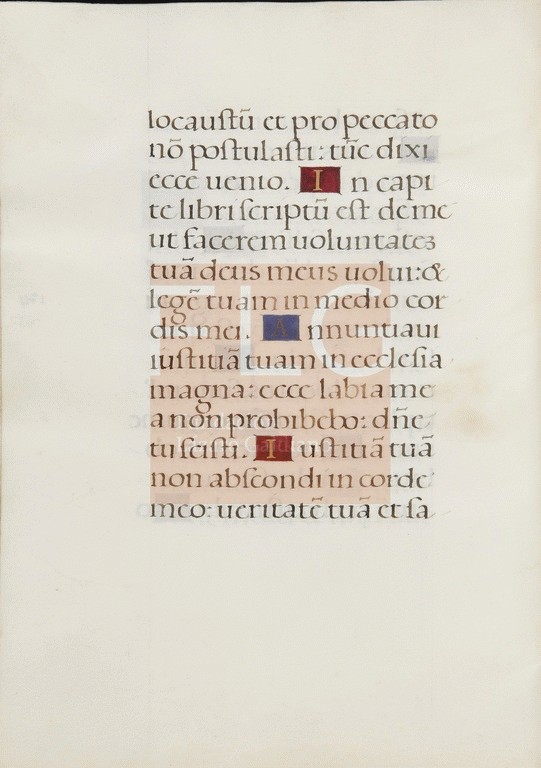 locauſtū et pro peccato
nō poſtulaſti: tūc dixi
ecce uenio. In capi
te libri ſcriptū eſt de me
ut facerem uoluntateз
tuā deus meus uolui: &
legē tuam in medio cor
dis mei. Annuntiaui
iuſtitiā tuam in eccleſia
magna: ecce labia me
a non prohibebo: dn̄e
tu ſciſti. Iuſtitiā tuā
non abſcondi in corde
meo: ueritatē tuā et ſa
FLG